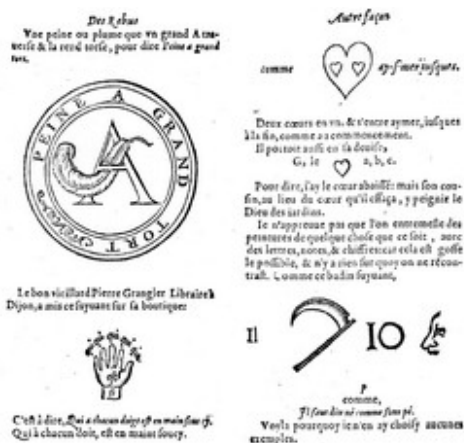 Des Rebus
Vne peine ou plume que vn grand A tra-
uerse & la rend torse, pour dire Peine a grand
tort.
PEINE A GRAND TORT
Le bon vieillard Pierre Grangier Libraire à
Dijon, a mis ce suyuant sur sa boutique:
C'est à dire, Qui a chacun doigt est en main
Qui à chacun doit, est en maint soucy.
Autre façon
comme ay-s'mer iusques.
Deux cœurs en vn, & s'entre aymer, iusques
à la fin, comme au commencement.
Il portoit aussi en sa deuise,
G, le a, b, c.
Pour dire, i'ay le cœur abaissé: mais son cou-
sin, au lieu du cœur qu'il effaça, y peignit le
Dieu des iardins.
Ie n'appreuue pas que l'on entremesle des
peintures de quelque chose que ce soit, auec
des lettres, notes, & chiffres: car cela est gosse
le possible, & n'y a rien sur quoy on ne récon-
trast. Comme ce badin suyuant,
Il IO
P
comme,
Il faut dire né comme sans pé.
Voyla pourquoy ie n'en ay choisy aucuns
exemples.